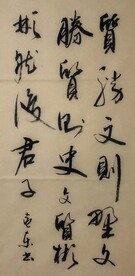 質勝文則野文
勝質則史文質彬
彬然後君子